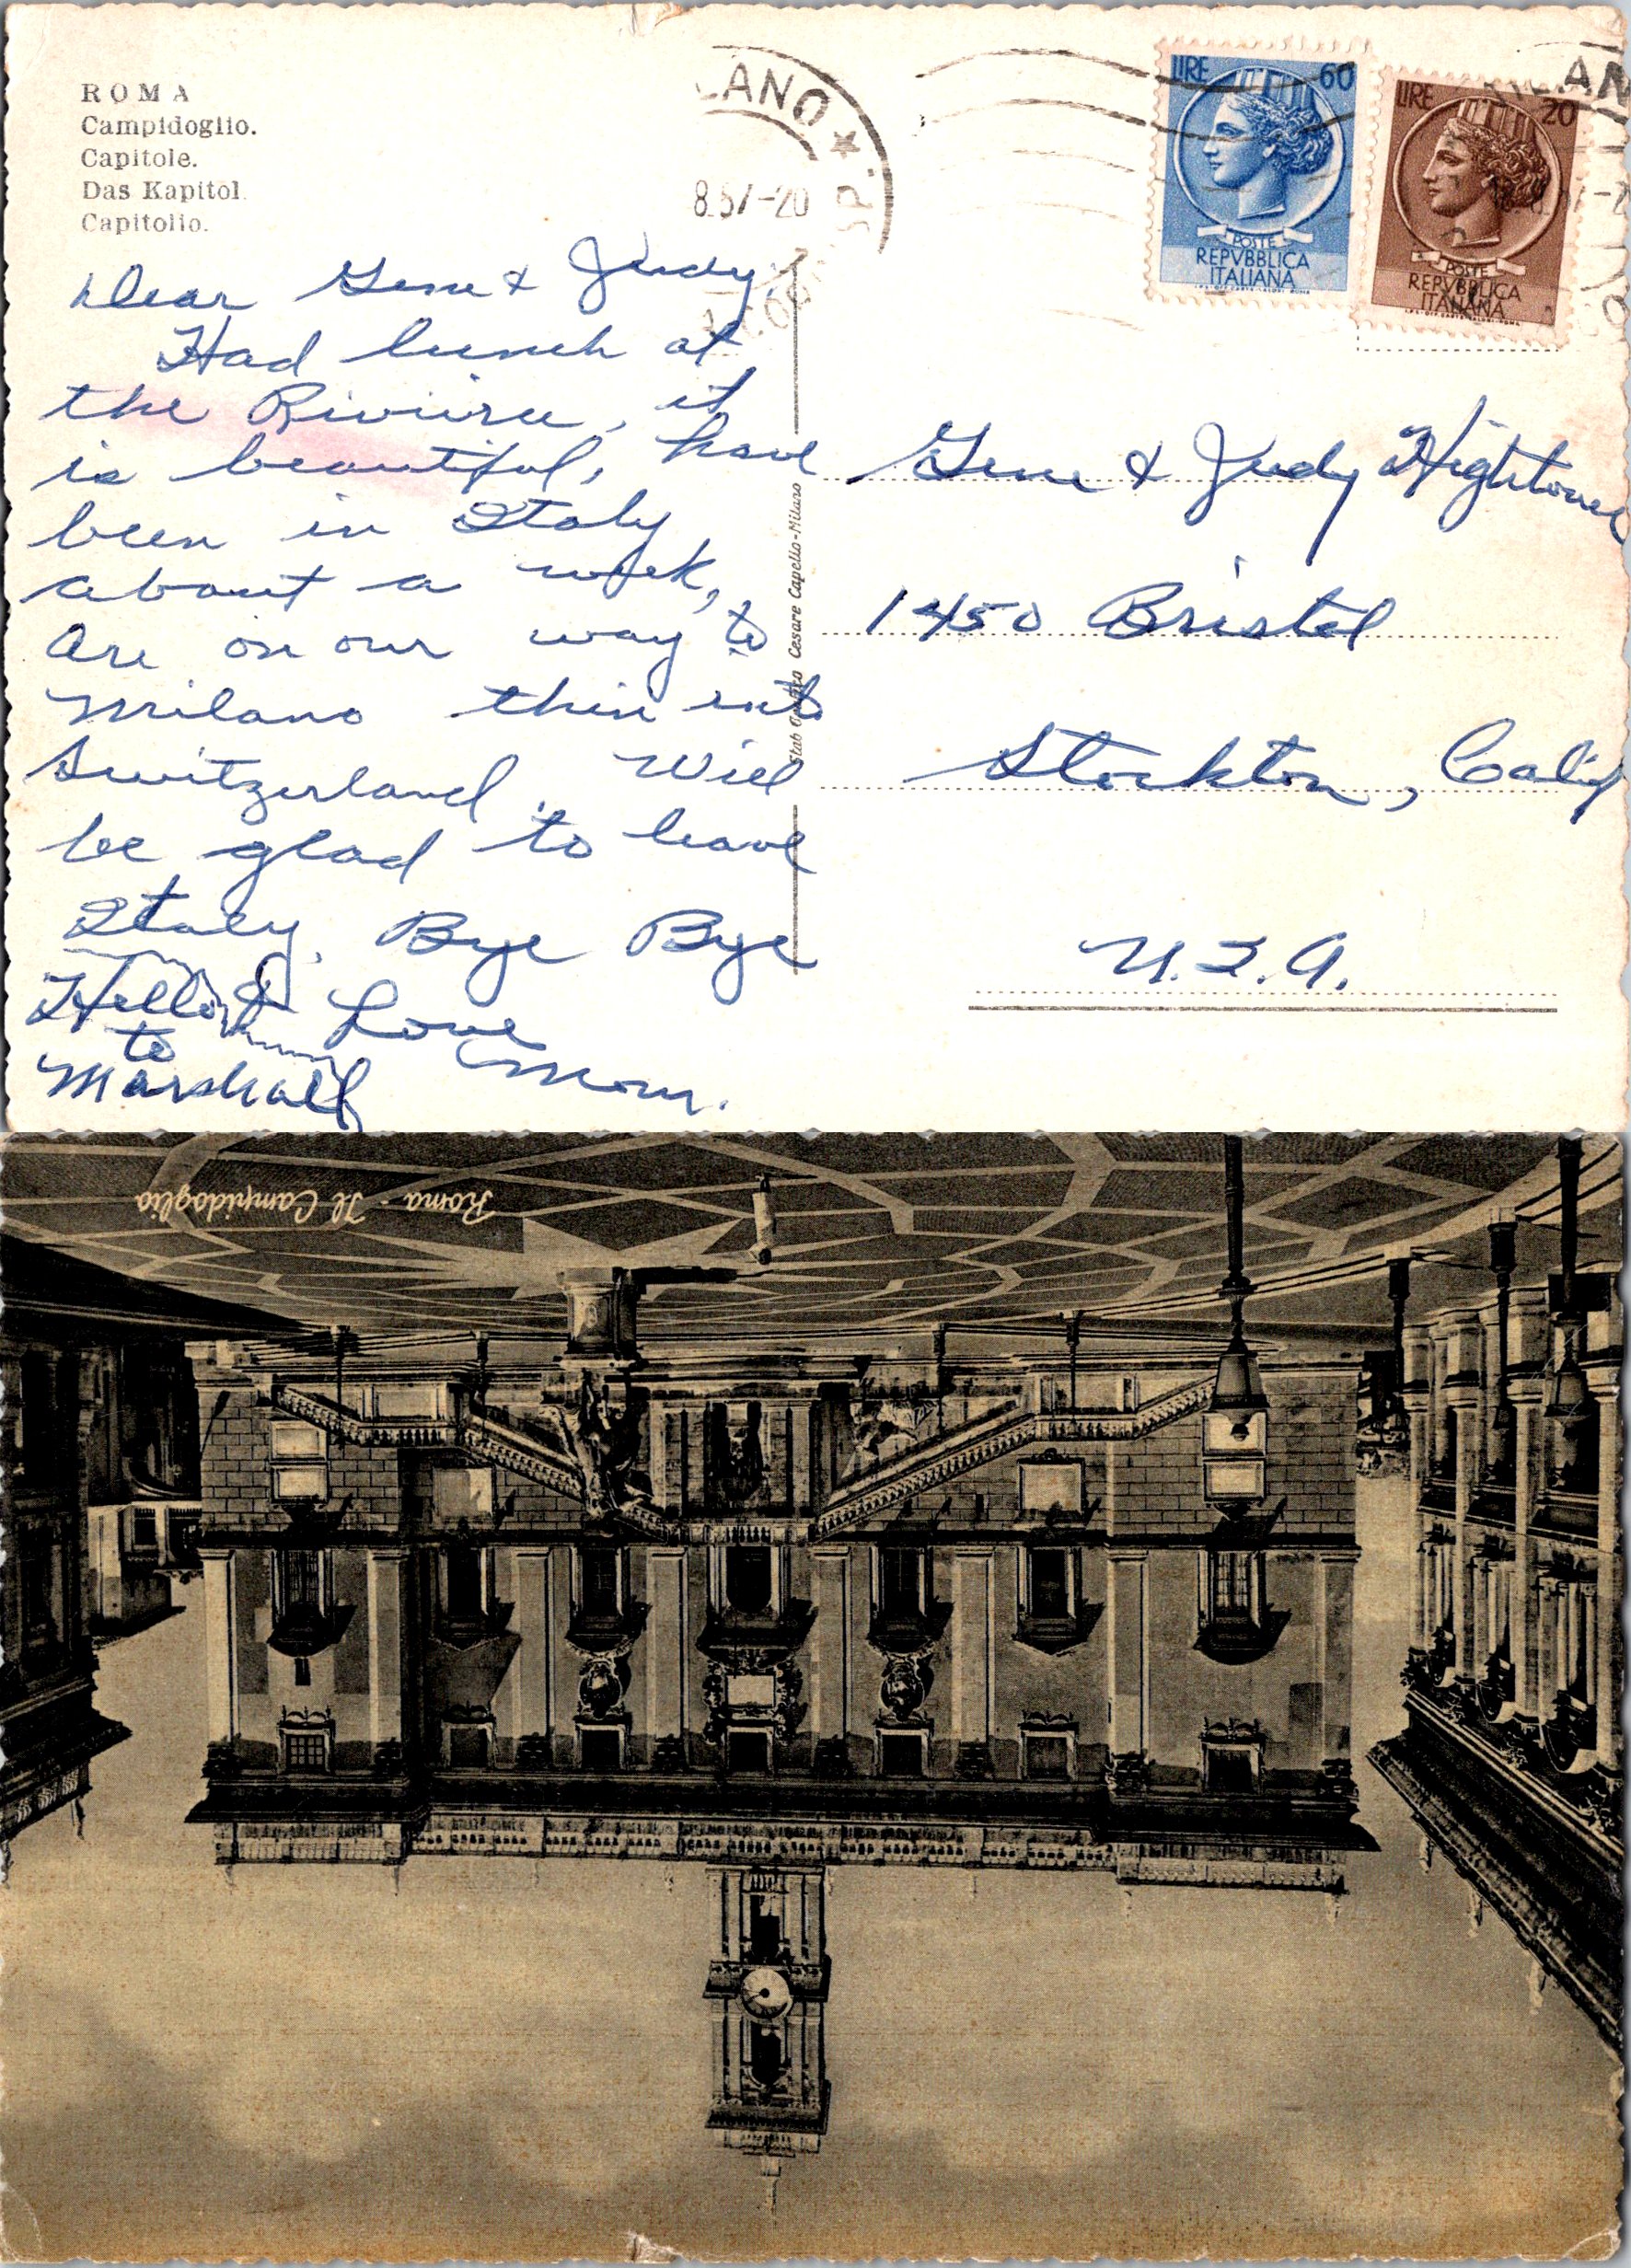 ROMA
Campidoglio.
Capitole.
Das Kapitol.
Capitolio.
LANO ★ SP.
8.57-20
LIRE 60
POSTE
REPVBBLICA
ITALIANA
LIRE 20
POSTE
REPVBBLICA
ITALIANA
Dear Gene & Judy,
Had lunch at
the Riviera, it
is beautiful, have
been in Italy
about a week,
are on our way to
Milano then into
Switzerland. Will
be glad to leave
Italy. Bye Bye
Hello
to
Marshall
Love
Mom.
Stab Grafico Cesare Capello-Milano
Gene & Judy Hightower
1450 Bristol
Stockton, Calif
U.S.A.
Roma - Il Campidoglio